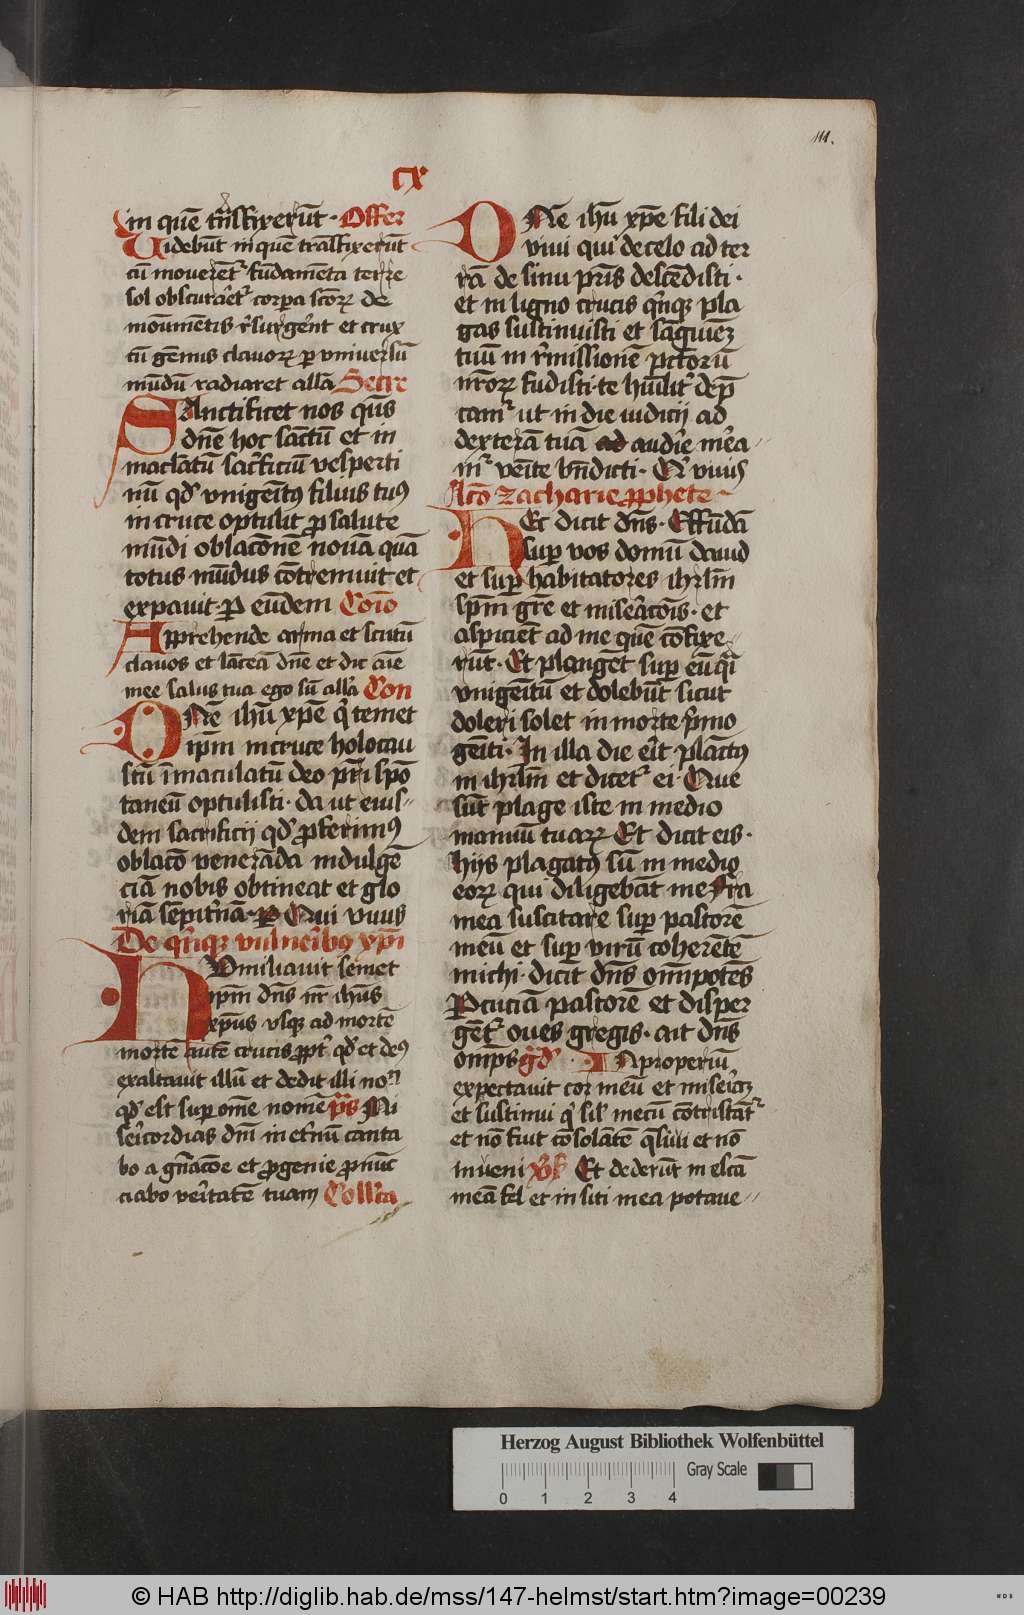 111.
cx
in quē trāſfixerūt · Offer
Uidebūt in quē tranſfixerūt
cū mouerēt᷑ fūdamēta terre
sol obscuraret᷑ corpa sctōꝝ de
moūmētis r̄surgēnt et crux
cū gēmis clauoꝝ ꝑ vniuersū
mūdū radiaret allā Secre
SAnctificet nos qm̄s
dn̄e hoc sāctū et in
maclātū sacrificiū vesperti
nū qd̓ vnigeītꝰ filius tuꝰ
in cruce optulit ꝓ salute
mūdi oblacōnē nouā quā
totus mūdus cōtremuit et
expauit · ꝑ eūdem Coīo
APprehende arma et scutū
clauos et lāceā dn̄e et dic aīe
mee salus tua ego sū allā Con
DNē ihū xpē q̄ temet
ip̄m in cruce holocau
stū īmaculatū deo pr̄i spō
taneū optulisti · da ut eius
dem sacrificij qd̓ ꝓferimꝰ
oblacō venerāda indulgē
ciā nobis obtineat et glo
riā sēpit̓nā · ꝑ Qui viuis
De qn̄qꝫ vulneribꝫ xp̄i
HVmiliauit semet
ip̄m dn̄s nr̄ ihūs
xp̄us vsqꝫ ad mortē
mortē autē crucis ꝓpt̓ qd̓ et deꝰ
exaltauit illū et dedit illi noē
qd̓ est super om̄e nomē p̄s Mi
sericordias dn̄i in et̓nū canta
bo a gn̄acōe et ꝓgenie ꝓnūc
ciabo veritatē tuam Collc̄a
DNē ihū xpē fili dei
viui qui de celo ad ter
rā de sinu pr̄is descēdisti ·
et in ligno crucis qn̄qꝫ pla
gas sustinuisti et sāguinēꝫ
tuū in r̄missionē pctōrū
nr̄oꝝ fudisti · te hūilit̓ dep̄
cam᷑ ut in die iudicij ad
dexterā tuā ad audire mērea
m᷑ venīte bn̄dicti · Qͥ viuis
Lcō Zacharie ꝓphete
HEc dicit dn̄s · Effūdā
suꝑ vos domū dauid
et suꝑ habitatores ihrl̄m
spm̄ grē et miseracōis · et
aspiciēt ad me quē cōfixe
rūt · Et plangēt suꝑ eū q̄i
vnigeītū et dolebūt sicut
doleri solet in morte pͥmo
genīti · In illa die erit plāctꝰ
in ihrl̄m et dicet᷑ ei · Que
sūt plage iste in medio
manuū tuaꝝ Et dicit eis ·
hijs plagatꝰ sū in medio
eoꝝ qui diligebāt me Fra
mea suscitare suꝑ pastorē
meū et suꝑ virū coherētē
michi · dicit dn̄s om̄ipotēs
Percuciā pastorē et disper
gēt᷑ oues gregis · ait dn̄s
om̄ps gr̄d · INproperiū
expectauit cor meū et miseriāꝫ
et sustinui qͥ sil̓ mecū cōtristaret᷑
et nō fuit cōsolātē q̄siui et nō
inueni v̓s Et dederūt in escā
meā fel et in siti mea potaue
Herzog August Bibliothek Wolfenbüttel
0 1 2 3 4
Gray Scale
© HAB http://diglib.hab.de/mss/147-helmst/start.htm?image=00239